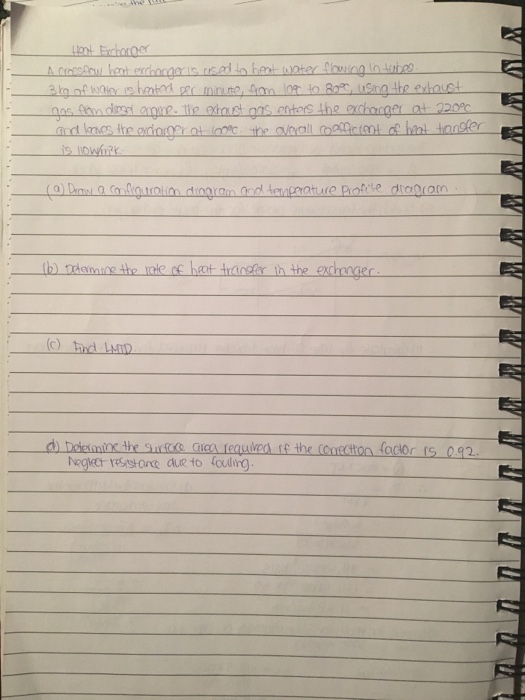 Heat Exchanger
A crossflow heat exchanger is used to heat water flowing in tubes.
3kg of water is heated per minute, from 10°C to 80°C, using the exhaust
gas from diesel engine. The exhaust gas enters the exchanger at 220°C
and leaves the exchanger at 100°C. The overall coefficient of heat transfer
is 110W/m²K
(a) Draw a configuration diagram and temperature profile diagram.
(b) Determine the rate of heat transfer in the exchanger.
(c) Find LMTD.
d) Determine the surface area required if the correction factor is 0.92.
Neglect resistance due to fouling.